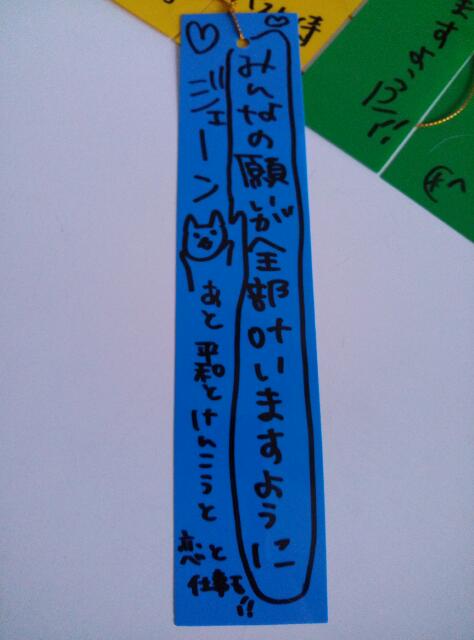 みんなの願いが全部叶いますように
ジェーン
あと平和とけんこうと
恋と
仕事も!!
ますように!!